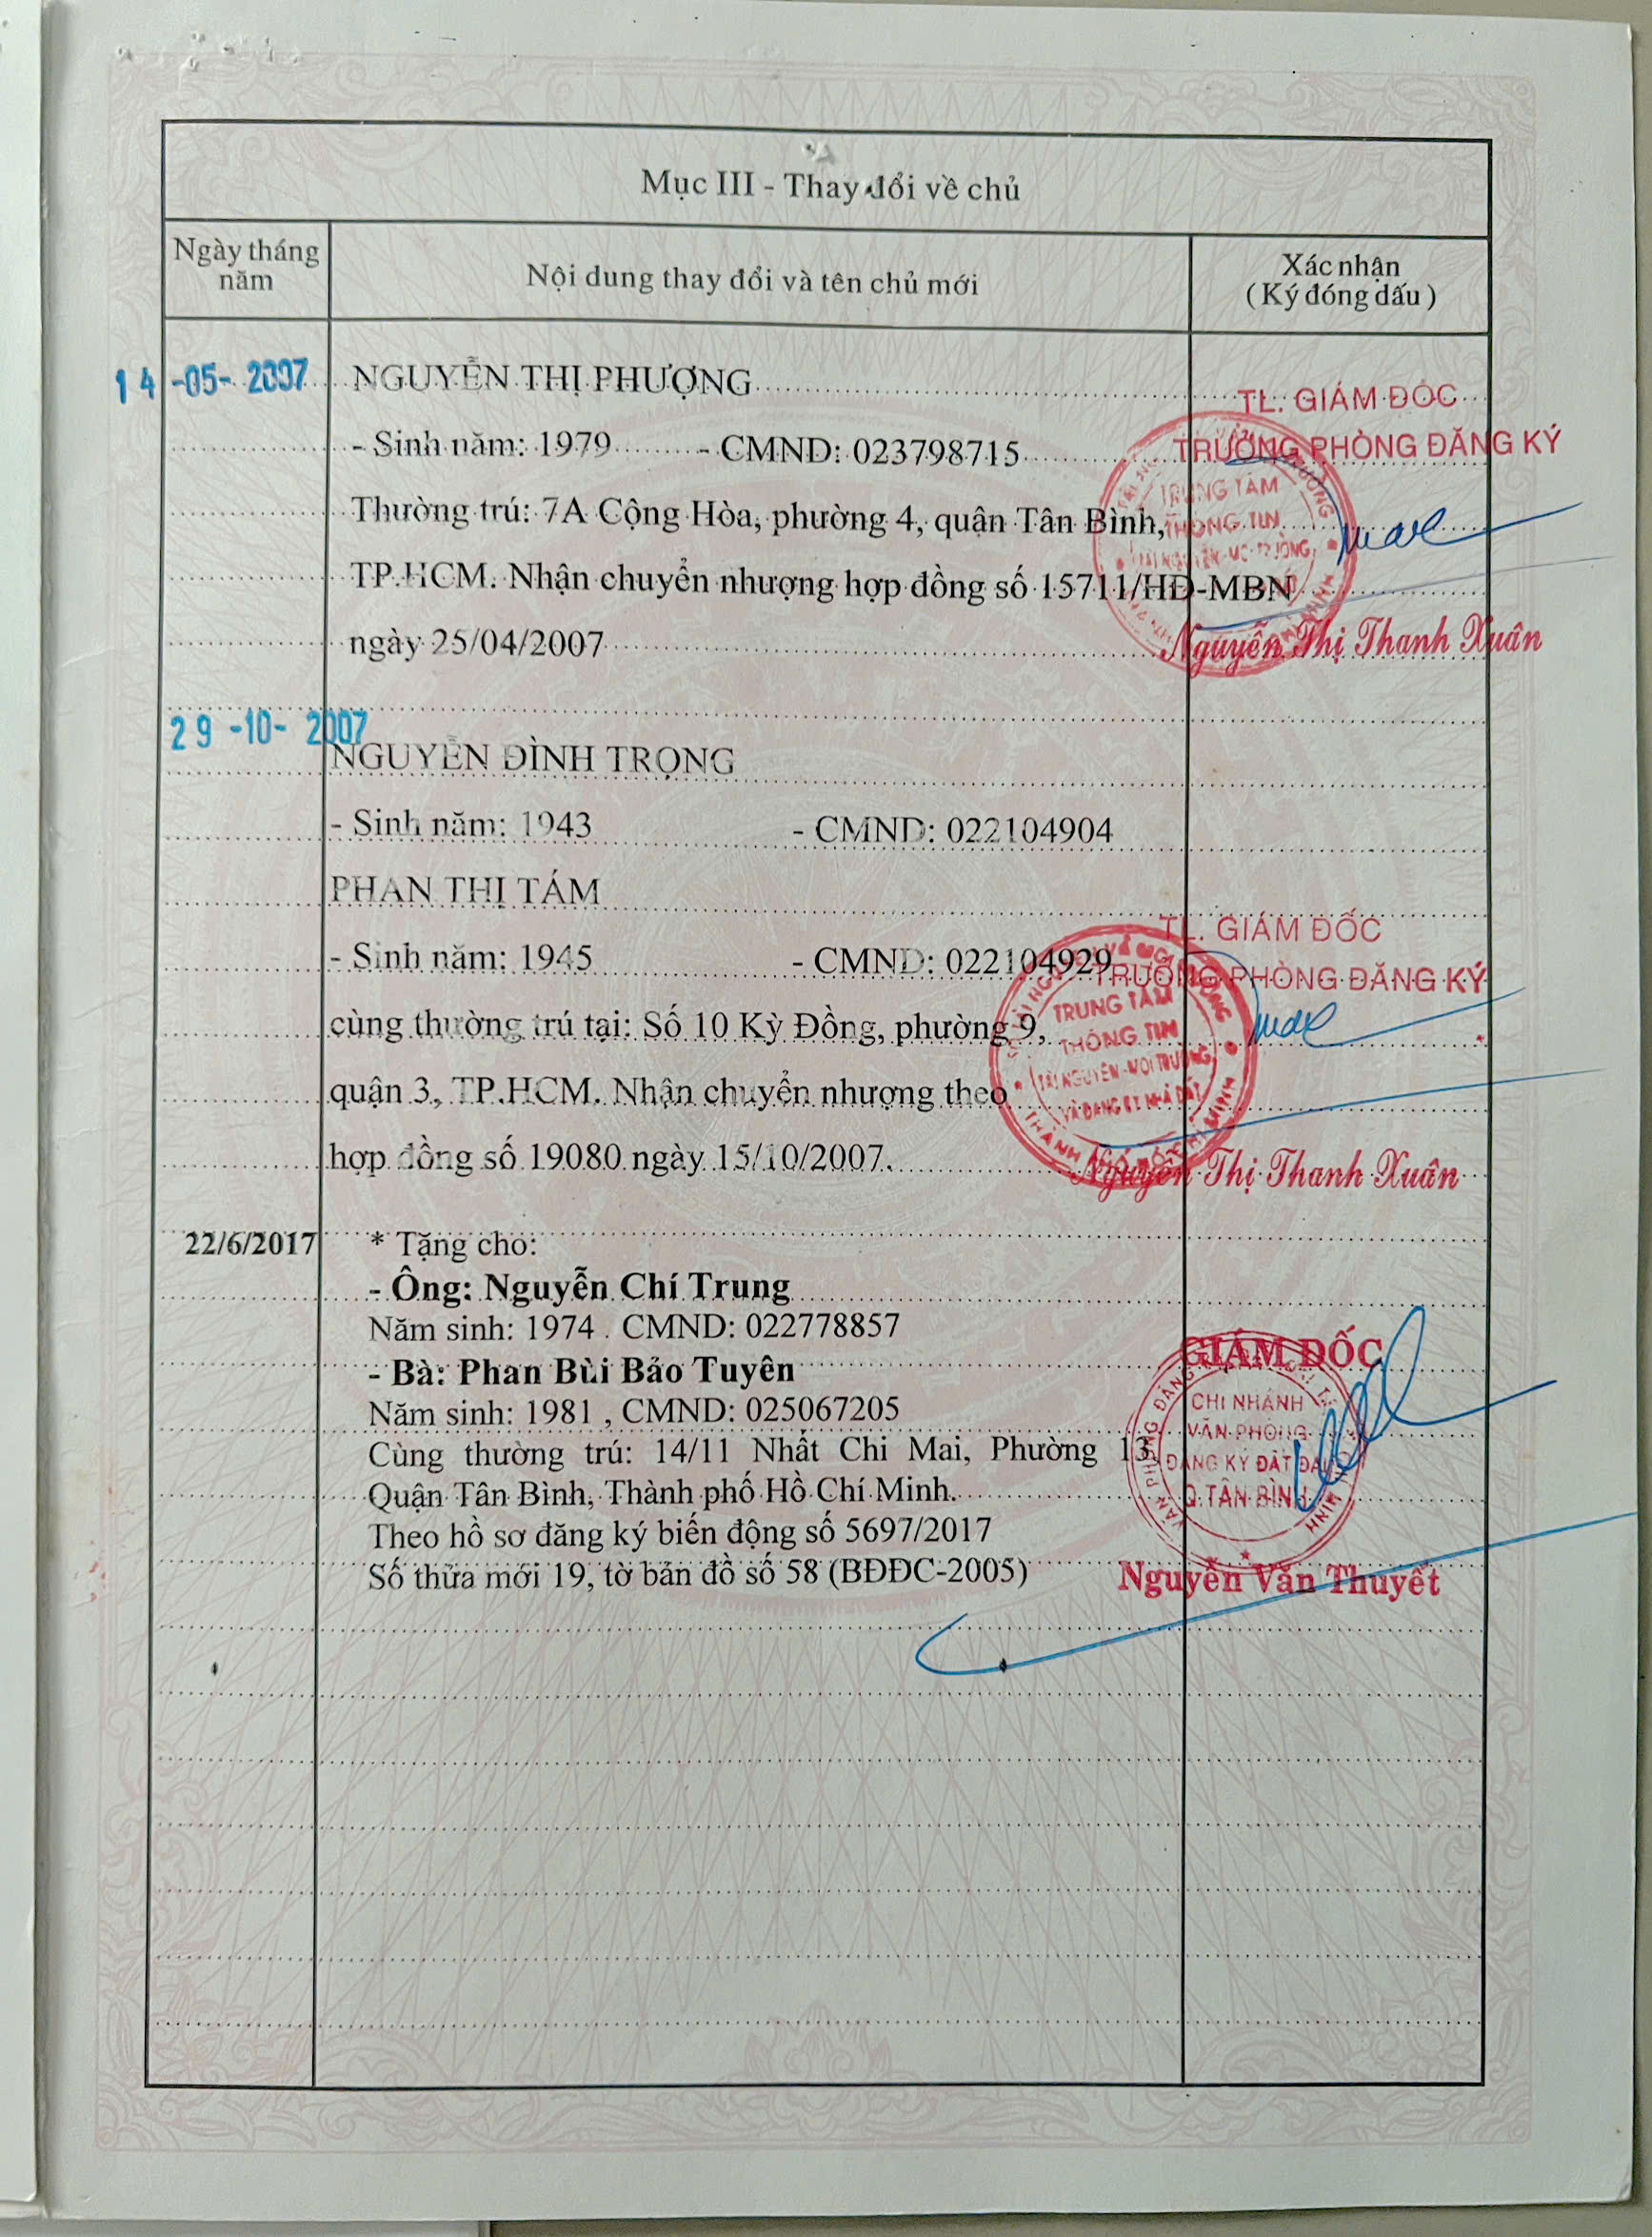 Mục III - Thay đổi về chủ
Ngày tháng năm
Nội dung thay đổi và tên chủ mới
Xác nhận
( Ký đóng dấu )
14 -05- 2007
NGUYỄN THỊ PHƯỢNG
- Sinh năm: 1979 - CMND: 023798715
Thường trú: 7A Cộng Hòa, phường 4, quận Tân Bình,
TP.HCM. Nhận chuyển nhượng hợp đồng số 15711/HĐ-MBN
ngày 25/04/2007
TL. GIÁM ĐỐC
TRƯỞNG PHÒNG ĐĂNG KÝ
TRUNG TÂM
THÔNG TIN
Nguyễn Thị Thanh Xuân
29 -10- 2007
NGUYỄN ĐÌNH TRỌNG
- Sinh năm: 1943 - CMND: 022104904
PHAN THỊ TÁM
- Sinh năm: 1945 - CMND: 022104929
cùng thường trú tại: Số 10 Kỳ Đồng, phường 9,
quận 3, TP.HCM. Nhận chuyển nhượng theo
hợp đồng số 19080 ngày 15/10/2007.
TL. GIÁM ĐỐC
TRƯỞNG PHÒNG ĐĂNG KÝ
TRUNG TÂM
THÔNG TIN
TÀI NGUYÊN - MÔI TRƯỜNG
VÀ ĐĂNG KÝ NHÀ ĐẤT
Nguyễn Thị Thanh Xuân
22/6/2017
* Tặng cho:
- Ông: Nguyễn Chí Trung
Năm sinh: 1974 . CMND: 022778857
- Bà: Phan Bùi Bảo Tuyên
Năm sinh: 1981 , CMND: 025067205
Cùng thường trú: 14/11 Nhất Chi Mai, Phường 13,
Quận Tân Bình, Thành phố Hồ Chí Minh.
Theo hồ sơ đăng ký biến động số 5697/2017
Số thửa mới 19, tờ bản đồ số 58 (BĐĐC-2005)
GIÁM ĐỐC
CHI NHÁNH
VĂN PHÒNG
ĐĂNG KÝ ĐẤT ĐAI
Q.TÂN BÌNH
Nguyễn Văn Thuyết